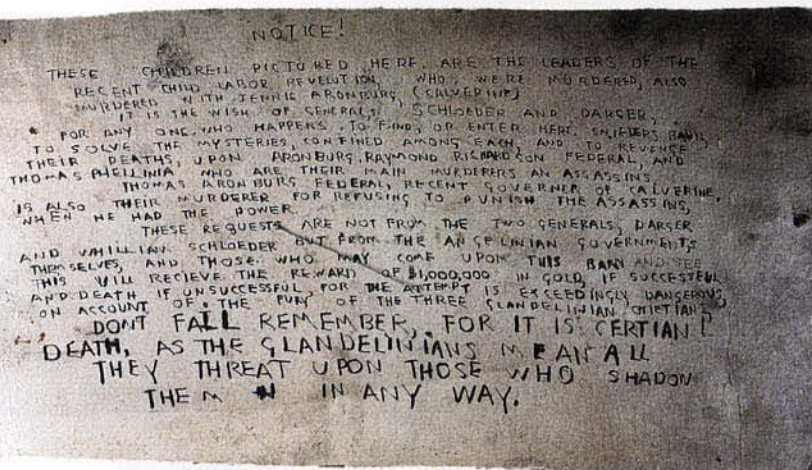 NOTICE!
THESE CHILDREN PICTURED HERE, ARE THE LEADERS OF THE
RECENT CHILD LABOR REVELUTION, WHO, WERE MURDERED, ALSO
MURDERED WITH JENNIE ARONBURG, (CALVERINE)
IT IS THE WISH OF GENERALS, SCHLOEDER AND DARGER,
FOR ANY ONE, WHO HAPPENS, TO FIND, OR ENTER HERE,
TO SOLVE THE MYSTERIES, CONFINED AMONG EACH, AND TO REVENGE
THEIR DEATHS, UPON ARONBURG, RAYMOND RICHARDSON FEDERAL, AND
THOMAS PHELLINIA WHO ARE THEIR MAIN MURDERERS AN ASSASSINS
THOMAS ARONBURG FEDERAL, RECENT GOVERNER OF CALVERINE,
IS ALSO THEIR MURDERER FOR REFUSING TO PUNISH THE ASSASSINS,
WHEN HE HAD THE POWER.
THESE REQUESTS ARE NOT FROM THE TWO GENERALS, DARGER
AND WHILLIAN SCHLOEDER BUT FROM THE ANGELINIAN GOVERNMENTS
THEMSELVES, AND THOSE WHO MAY COME UPON THIS AND SEE
THIS WILL RECIEVE THE REWARD OF $1,000,000 IN GOLD, IF SUCCESSFUL
AND DEATH IF UNSUCCESSFUL, FOR THE ATTEMPT IS EXCEEDINGLY DANGEROUS,
ON ACCOUNT OF THE FURY OF THE THREE GLANDELINIAN
DONT FALL REMEMBER, FOR IT IS CERTIAN!
DEATH, AS THE GLANDELINIANS MEAN ALL
THEY THREAT UPON THOSE WHO SHADOW
THEM IN ANY WAY.